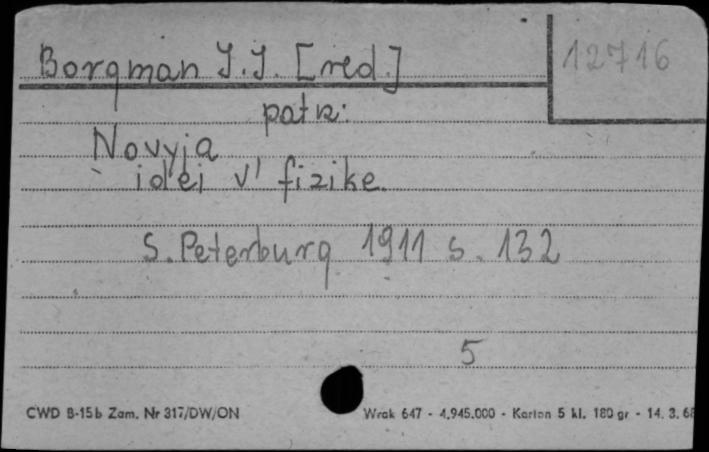 12716
Borgman J.J. [red.]
patrz:
Novyja
idei v' fizike.
S. Peterburg 1911 s. 132
5
CWD B-15b Zam. Nr 317/DW/ON Wrak 647 - 4.945.000 - Karton 5 kl. 180 gr - 14. 3. 68